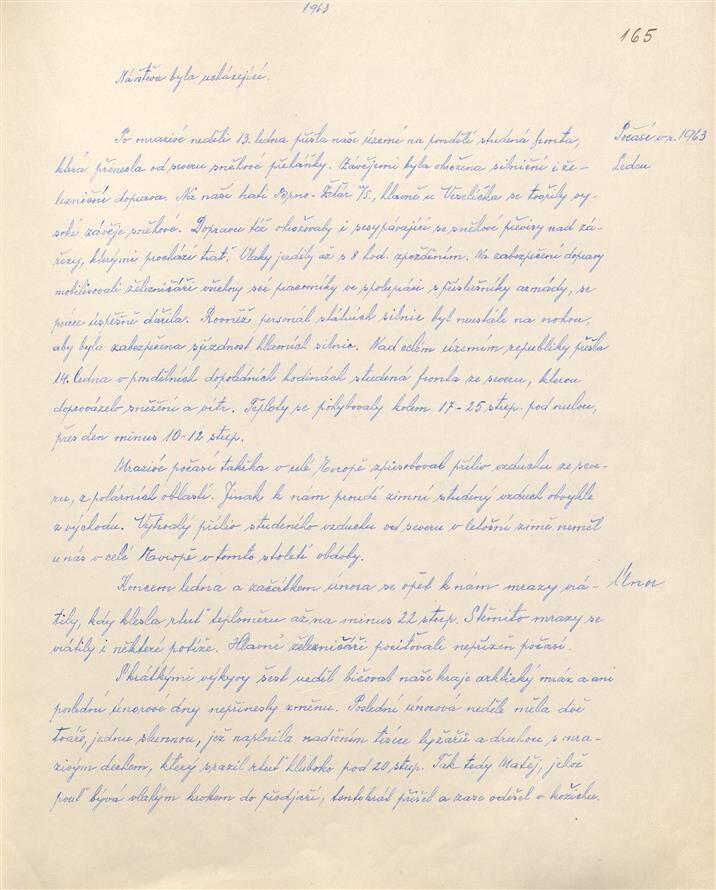 1963
165
Návštěva byla ucházející.
Po mrazivé neděli 13. ledna přišla naše území na pondělí studená fronta,
Počasí v r. 1963
která přinesla od severu sněhové přeháňky. Závějemi byla ohrožena silniční i že-
Leden
lezniční doprava. Na naší trati Brno - Žďár n/S., hlavně u Veselíčka se tvořily vy-
soké závěje sněhové. Dopravu též ohrožovaly i sesypávající se sněhové převisy nad zá-
řezy, kterými prochází trať. Vlaky jezdily až s 8 hod. zpožděním. Na zabezpečení dopravy
mobilisovali železničáři všechny své pracovníky ve spolupráci s příslušníky armády, se
práce úspěšně dařila. Rovněž personal státních silnic byl neustále na nohou,
aby byla zabezpečena sjízdnost hlavních silnic. Nad celém územím republiky přišla
14. ledna v pondělních dopoledních hodinách studená fronta ze severu, kterou
doprovázelo sněžení a vítr. Teploty se pohybovaly kolem 17 - 25 stup. pod nulou,
přes den minus 10-12 stup.
Mrazivé počasí takřka v celé Evropě způsoboval příliv vzduchu ze seve-
ru, z polárních oblastí. Jinak k nám proudí zimní studený vzduch obvykle
z východu. Vytrvalý příliv studeného vzduchu od severu v letošní zimě neměl
u nás v celé Evropě v tomto století obdoby.
Koncem ledna a začátkem února se opět k nám mrazy vrá-
Únor
tily, kdy klesla rtuť teploměru až na minus 22 stup. S těmito mrazy se
vrátily i některé potíže. Hlavně železničáři pociťovali nepřízeň počasí.
S krátkými výkyvy šest neděl bičoval naše kraje arktický mráz a ani
poslední únorové dny nepřinesly změnu. Poslední únorová neděle měla dvě
tváře, jednu slunnou, jež naplnila nadšením tisíce lyžařů a druhou s mra-
zivým dechem, který srazil rtuť hluboko pod 20 stup. Tak tedy Matěj, jehož
pouť bývá vlahým krokem do předjaří, tentokrát přišel a zase odešel v kožichu.